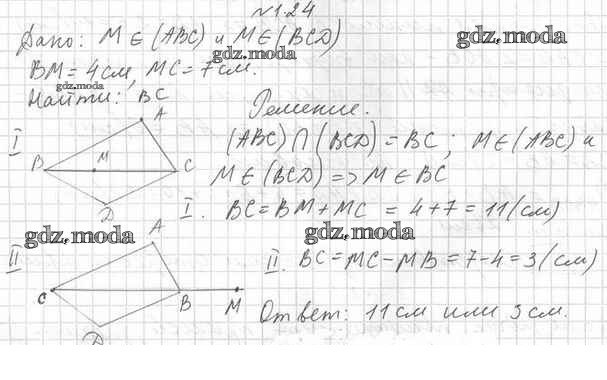 №1.24
Дано: M ∈ (ABC) и M ∈ (BCD)
gdz.moda
gdz.moda
BM = 4 см, MC = 7 см.
gdz.moda
Найти: BC
Решение.
I
A
B
M
C
D
(ABC) ∩ (BCD) = BC; M ∈ (ABC) и
M ∈ (BCD) => M ∈ BC
I. BC = BM + MC = 4 + 7 = 11 (см)
gdz.moda
gdz.moda
II
A
C
B
M
D
II. BC = MC - MB = 7 - 4 = 3 (см)
Ответ: 11 см или 3 см.